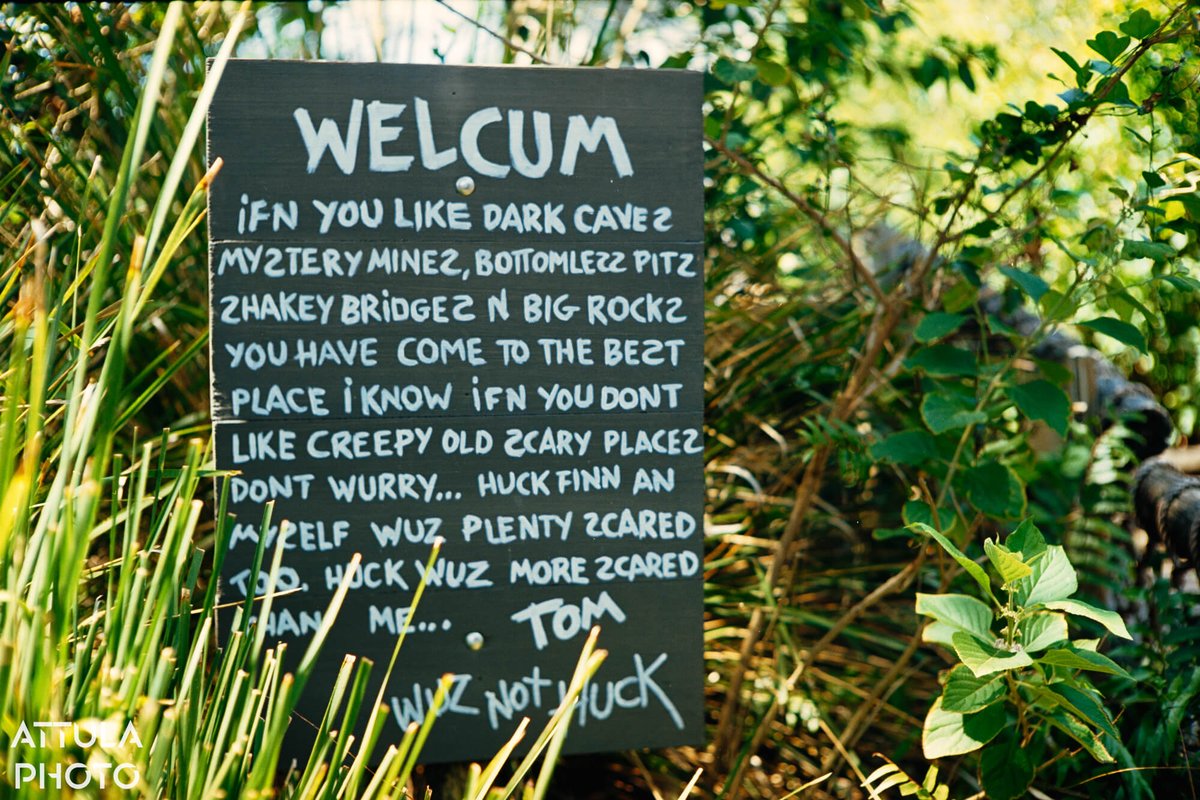 WELCUM
iFN YOU LIKE DARK CAVES
MYSTERY MINES, BOTTOMLESS PITS
SHAKEY BRiDGES N BIG ROCKS
YOU HAVE COME TO THE BEST
PLACE i KNOW iFN YOU DONT
LIKE CREEPY OLD SCARY PLACES
DONT WURRY... HUCK FINN AN
MYSELF WUZ PLENTY SCARED
TOO. HUCK WUZ MORE SCARED
THAN ME... TOM
WUZ NOT HUCK
ATTULA
PHOTO